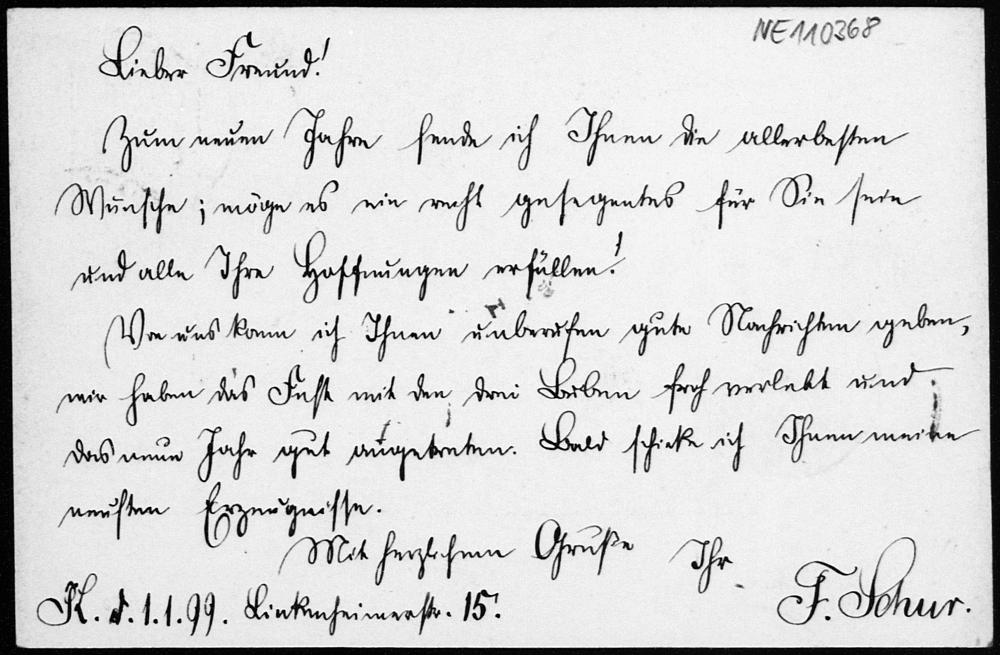 NE110368
Lieber Freund!
Zum neuen Jahre sende ich Ihnen die allerbesten
Wünsche; möge es ein recht gesegnetes für Sie sein
und alle Ihre Hoffnungen erfüllen!
Von uns kann ich Ihnen unberufen gute Nachrichten geben,
wir haben das Fest mit den drei Buben froh verlebt und
das neue Jahr gut angetreten. Bald schicke ich Ihnen meine
neusten Erzeugnisse.
Mit herzlichem Gruße Ihr
F. Schur.
K. d. 1.1.99. Linkenheimerstr. 15.